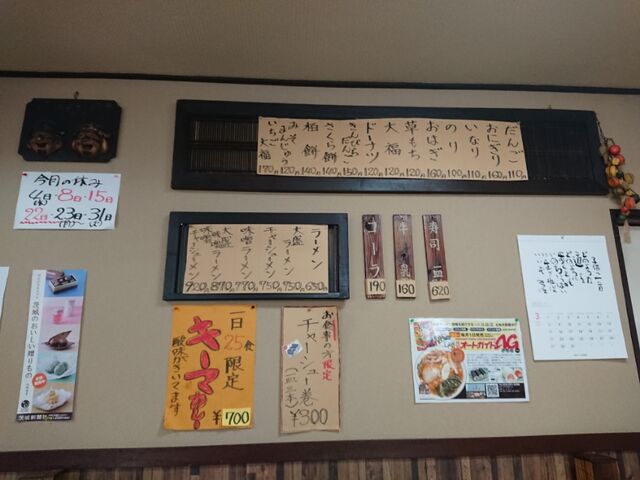 今月の休み
4日・8日・15日
22日・23日・31日
だんご 110
おにぎり 160
いなり 110
のり 100
おはぎ 160
草もち 120
大福 120
ドーナツ 120
きんぴらだんご 150
さくら餅 140
柏餅 140
みそまんじゅう 120
いちご大福 170
ラーメン 650
大盛ラーメン 730
チャーシューメン 750
味噌ラーメン 770
大盛味噌ラーメン 870
味噌チャーシューメン 920
コーラ 190
牛乳 160
寿司一皿 620
茨城のおいしい贈りもの
茨城新聞社
一日25食限定
キーマカレー
酸味がきいてます
¥700
お食事の方限定
チャーシュー巻
(一皿三本)
¥300
オートガイド
3